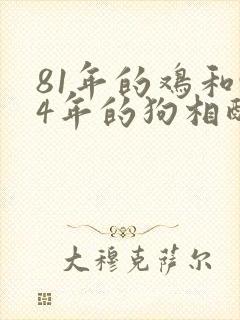 81年的鸡和
4年的狗相
大穆克萨尔